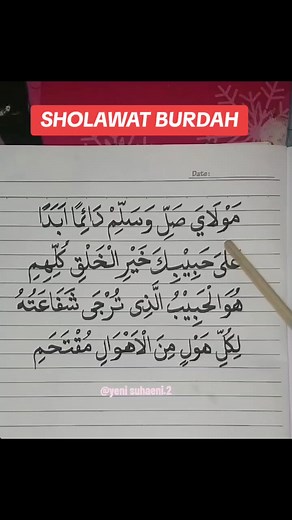 SHOLAWAT BURDAH
Date:
مَوْلَايَ صَلِّ وَسَلِّمْ دَائِمًا اَبَدًا
عَلَى حَبِيْبِكَ خَيْرِ الْخَلْقِ كُلِّهِمِ
هُوَ الْحَبِيْبُ الَّذِى تُرْجَى شَفَاعَتُهُ
لِكُلِّ هَوْلٍ مِنَ الْاَهْوَالِ مُقْتَحَمِ
@yeni suhaeni.2